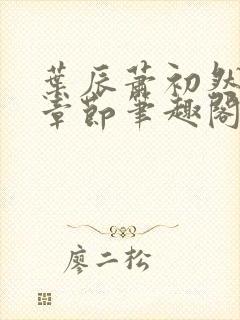 葉辰蕭初然
章節筆趣閣
廖二松